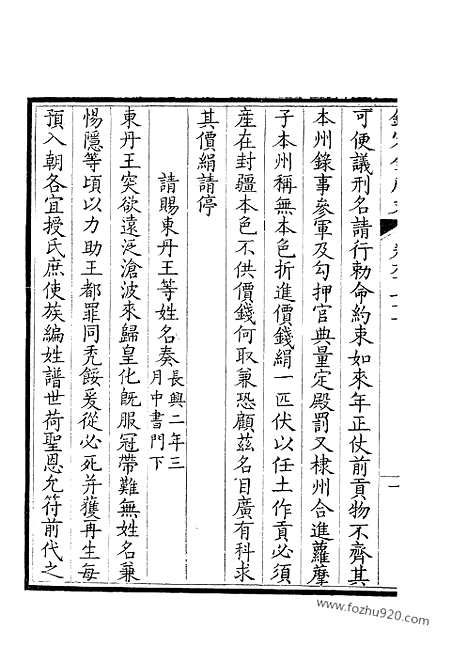 可便議刑名請行勅命約束如來年正仗前貢物不齊其
本州錄事參軍及勾押官典量定殿罰又棣州合進蘿䕷
子本州稱無本色折進價錢絹一匹伏以任土作貢必須
産在封疆本色不供價錢何取兼恐顧茲名目廣有科求
其價絹請停
請賜東丹王等姓名奏長興二年三月中書門下
東丹王突欲遠泛滄波來歸皇化旣服冠帶難無姓名兼
惕隱等頃以力助王都罪同禿餒爰從必死并獲再生每
預入朝各宜授氏庶使族編姓譜世荷聖恩允符前代之
www.fozhu920.com